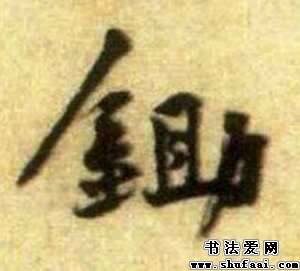 鋤
书法爱网
www.shufaai.com